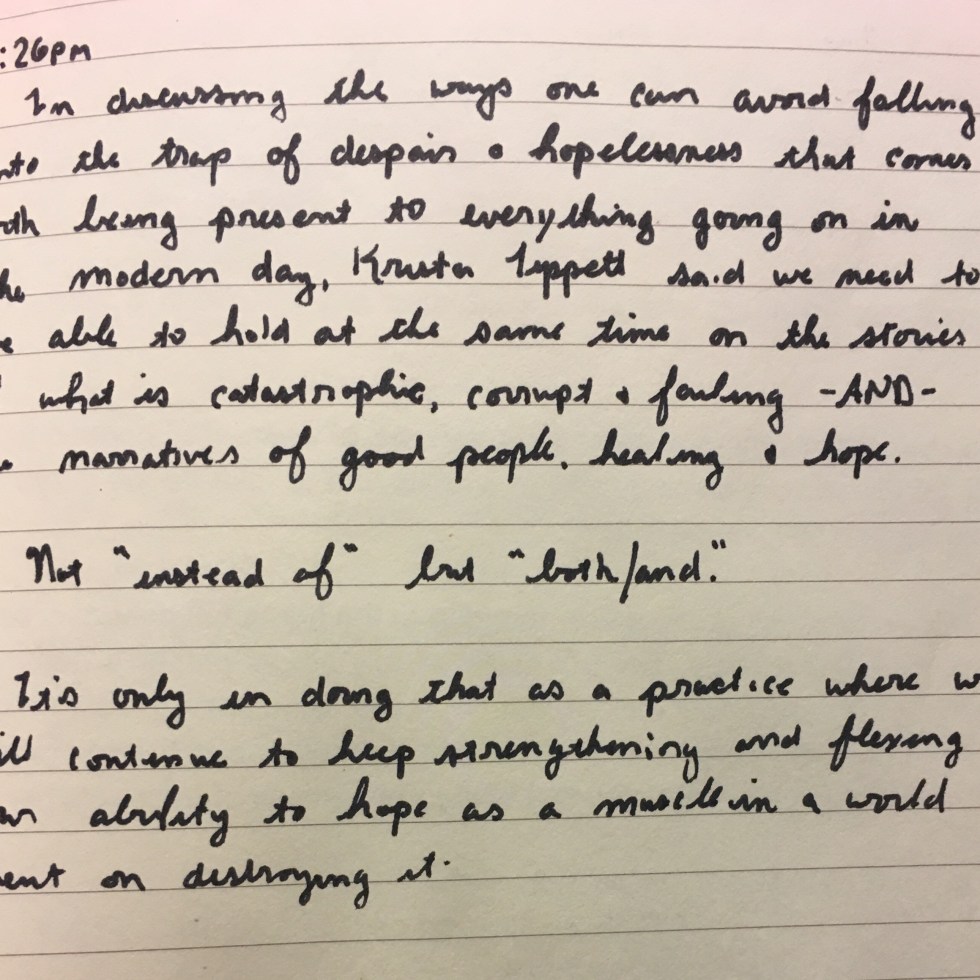 :26pm
In discussing the ways one can avoid falling
nto the trap of despair & hopelessness that comes
ith being present to everything going on in
he modern day, Krista Tippett said we need to
e able to hold at the same time on the stories
what is catastrophic, corrupt & failing -AND-
narratives of good people, healing & hope.
Not "instead of" but "both/and."
It's only in doing that as a practice where w
ill continue to keep strengthening and flexing
ur ability to hope as a muscle in a world
ent on destroying it.